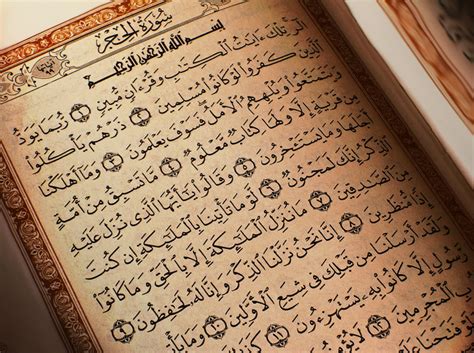 سُورَةُ الْحِجْرِ
بِسْمِ ٱللَّهِ ٱلرَّحْمَٰنِ ٱلرَّحِيمِ
الٓر تِلْكَ ءَايَٰتُ ٱلْكِتَٰبِ وَقُرْءَانٍ مُّبِينٍ ١ رُّبَمَا يَوَدُّ
ٱلَّذِينَ كَفَرُوا۟ لَوْ كَانُوا۟ مُسْلِمِينَ ٢ ذَرْهُمْ يَأْكُلُوا۟
وَيَتَمَتَّعُوا۟ وَيُلْهِهِمُ ٱلْأَمَلُ فَسَوْفَ يَعْلَمُونَ ٣ وَمَآ أَهْلَكْنَا
مِن قَرْيَةٍ إِلَّا وَلَهَا كِتَابٌ مَّعْلُومٌ ٤ مَّا تَسْبِقُ مِنْ أُمَّةٍ
أَجَلَهَا وَمَا يَسْتَـْٔخِرُونَ ٥ وَقَالُوا۟ يَٰٓأَيُّهَا ٱلَّذِى نُزِّلَ عَلَيْهِ
ٱلذِّكْرُ إِنَّكَ لَمَجْنُونٌ ٦ لَّوْ مَا تَأْتِينَا بِٱلْمَلَٰٓئِكَةِ إِن كُنتَ
مِنَ ٱلصَّٰدِقِينَ ٧ مَا نُنَزِّلُ ٱلْمَلَٰٓئِكَةَ إِلَّا بِٱلْحَقِّ وَمَا كَانُوٓا۟
إِذًا مُّنظَرِينَ ٨ إِنَّا نَحْنُ نَزَّلْنَا ٱلذِّكْرَ وَإِنَّا لَهُۥ لَحَٰفِظُونَ ٩
وَلَقَدْ أَرْسَلْنَا مِن قَبْلِكَ فِى شِيَعِ ٱلْأَوَّلِينَ ١٠ وَمَا يَأْتِ
رَّسُولٍ إِلَّا كَانُوا۟ بِهِۦ يَسْتَهْزِءُونَ ١١
ٱلْمُجْرِمِينَ ١٢ لَا يُؤْ